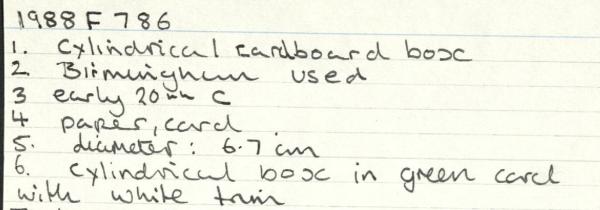 1988 F 786
1. Cylindrical cardboard box
2 Birmingham used
3 early 20th C
4 paper, card
5. diameter: 6.7 cm
6. cylindrical box in green card
with white trim